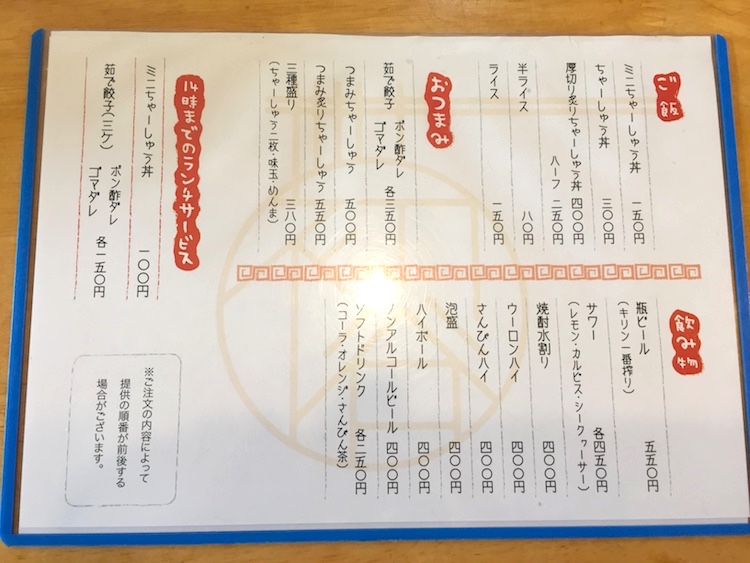 ご飯
ミニちゃーしゅう丼 一五〇円
ちゃーしゅう丼 三〇〇円
厚切り炙りちゃーしゅう丼 四〇〇円
ハーフ 二五〇円
半ライス 八〇円
ライス 一五〇円
おつまみ
茹で餃子 ポン酢ダレ
ゴマダレ 各三五〇円
つまみちゃーしゅう 五〇〇円
つまみ炙りちゃーしゅう 五五〇円
三種盛り 三八〇円
(ちゃーしゅう二枚・味玉・めんま)
14時までのランチサービス
ミニちゃーしゅう丼 一〇〇円
茹で餃子(三ケ) ポン酢ダレ
ゴマダレ 各一五〇円
飲み物
瓶ビール 五五〇円
(キリン一番搾り)
サワー 各四五〇円
(レモン・カルピス・シークヮーサー)
焼酎水割り 四〇〇円
ウーロンハイ 四〇〇円
さんぴんハイ 四〇〇円
泡盛 四〇〇円
ハイボール 四〇〇円
ノンアルコールビール 四〇〇円
ソフトドリンク 各二五〇円
(コーラ・オレンジ・さんぴん茶)
※ご注文の内容によって
提供の順番が前後する
場合がございます。